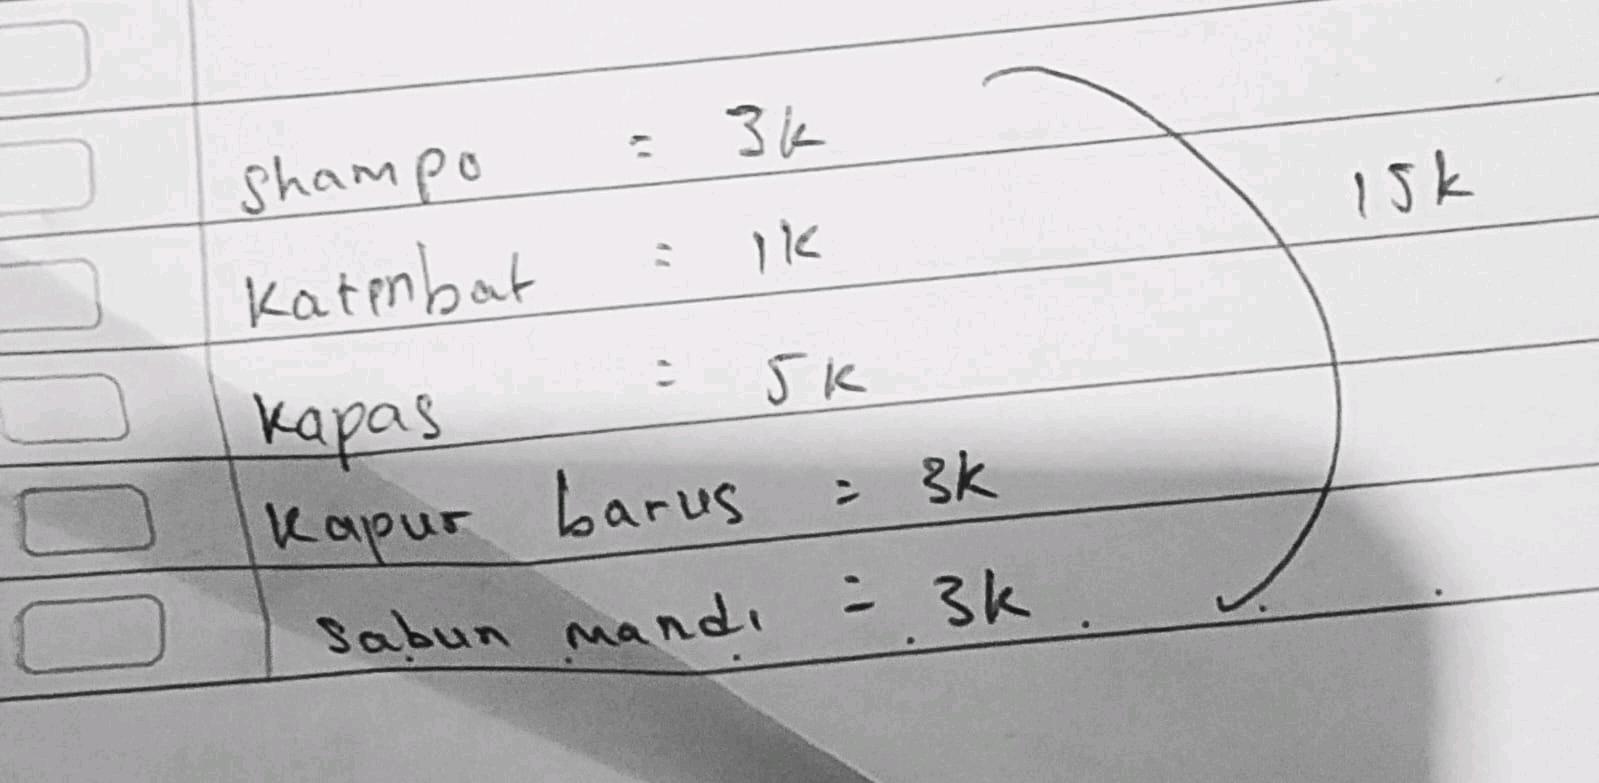 shampo = 3k
15k
katenbat = 1k
kapas = 5k
kapur barus = 3k
sabun mandi = 3k